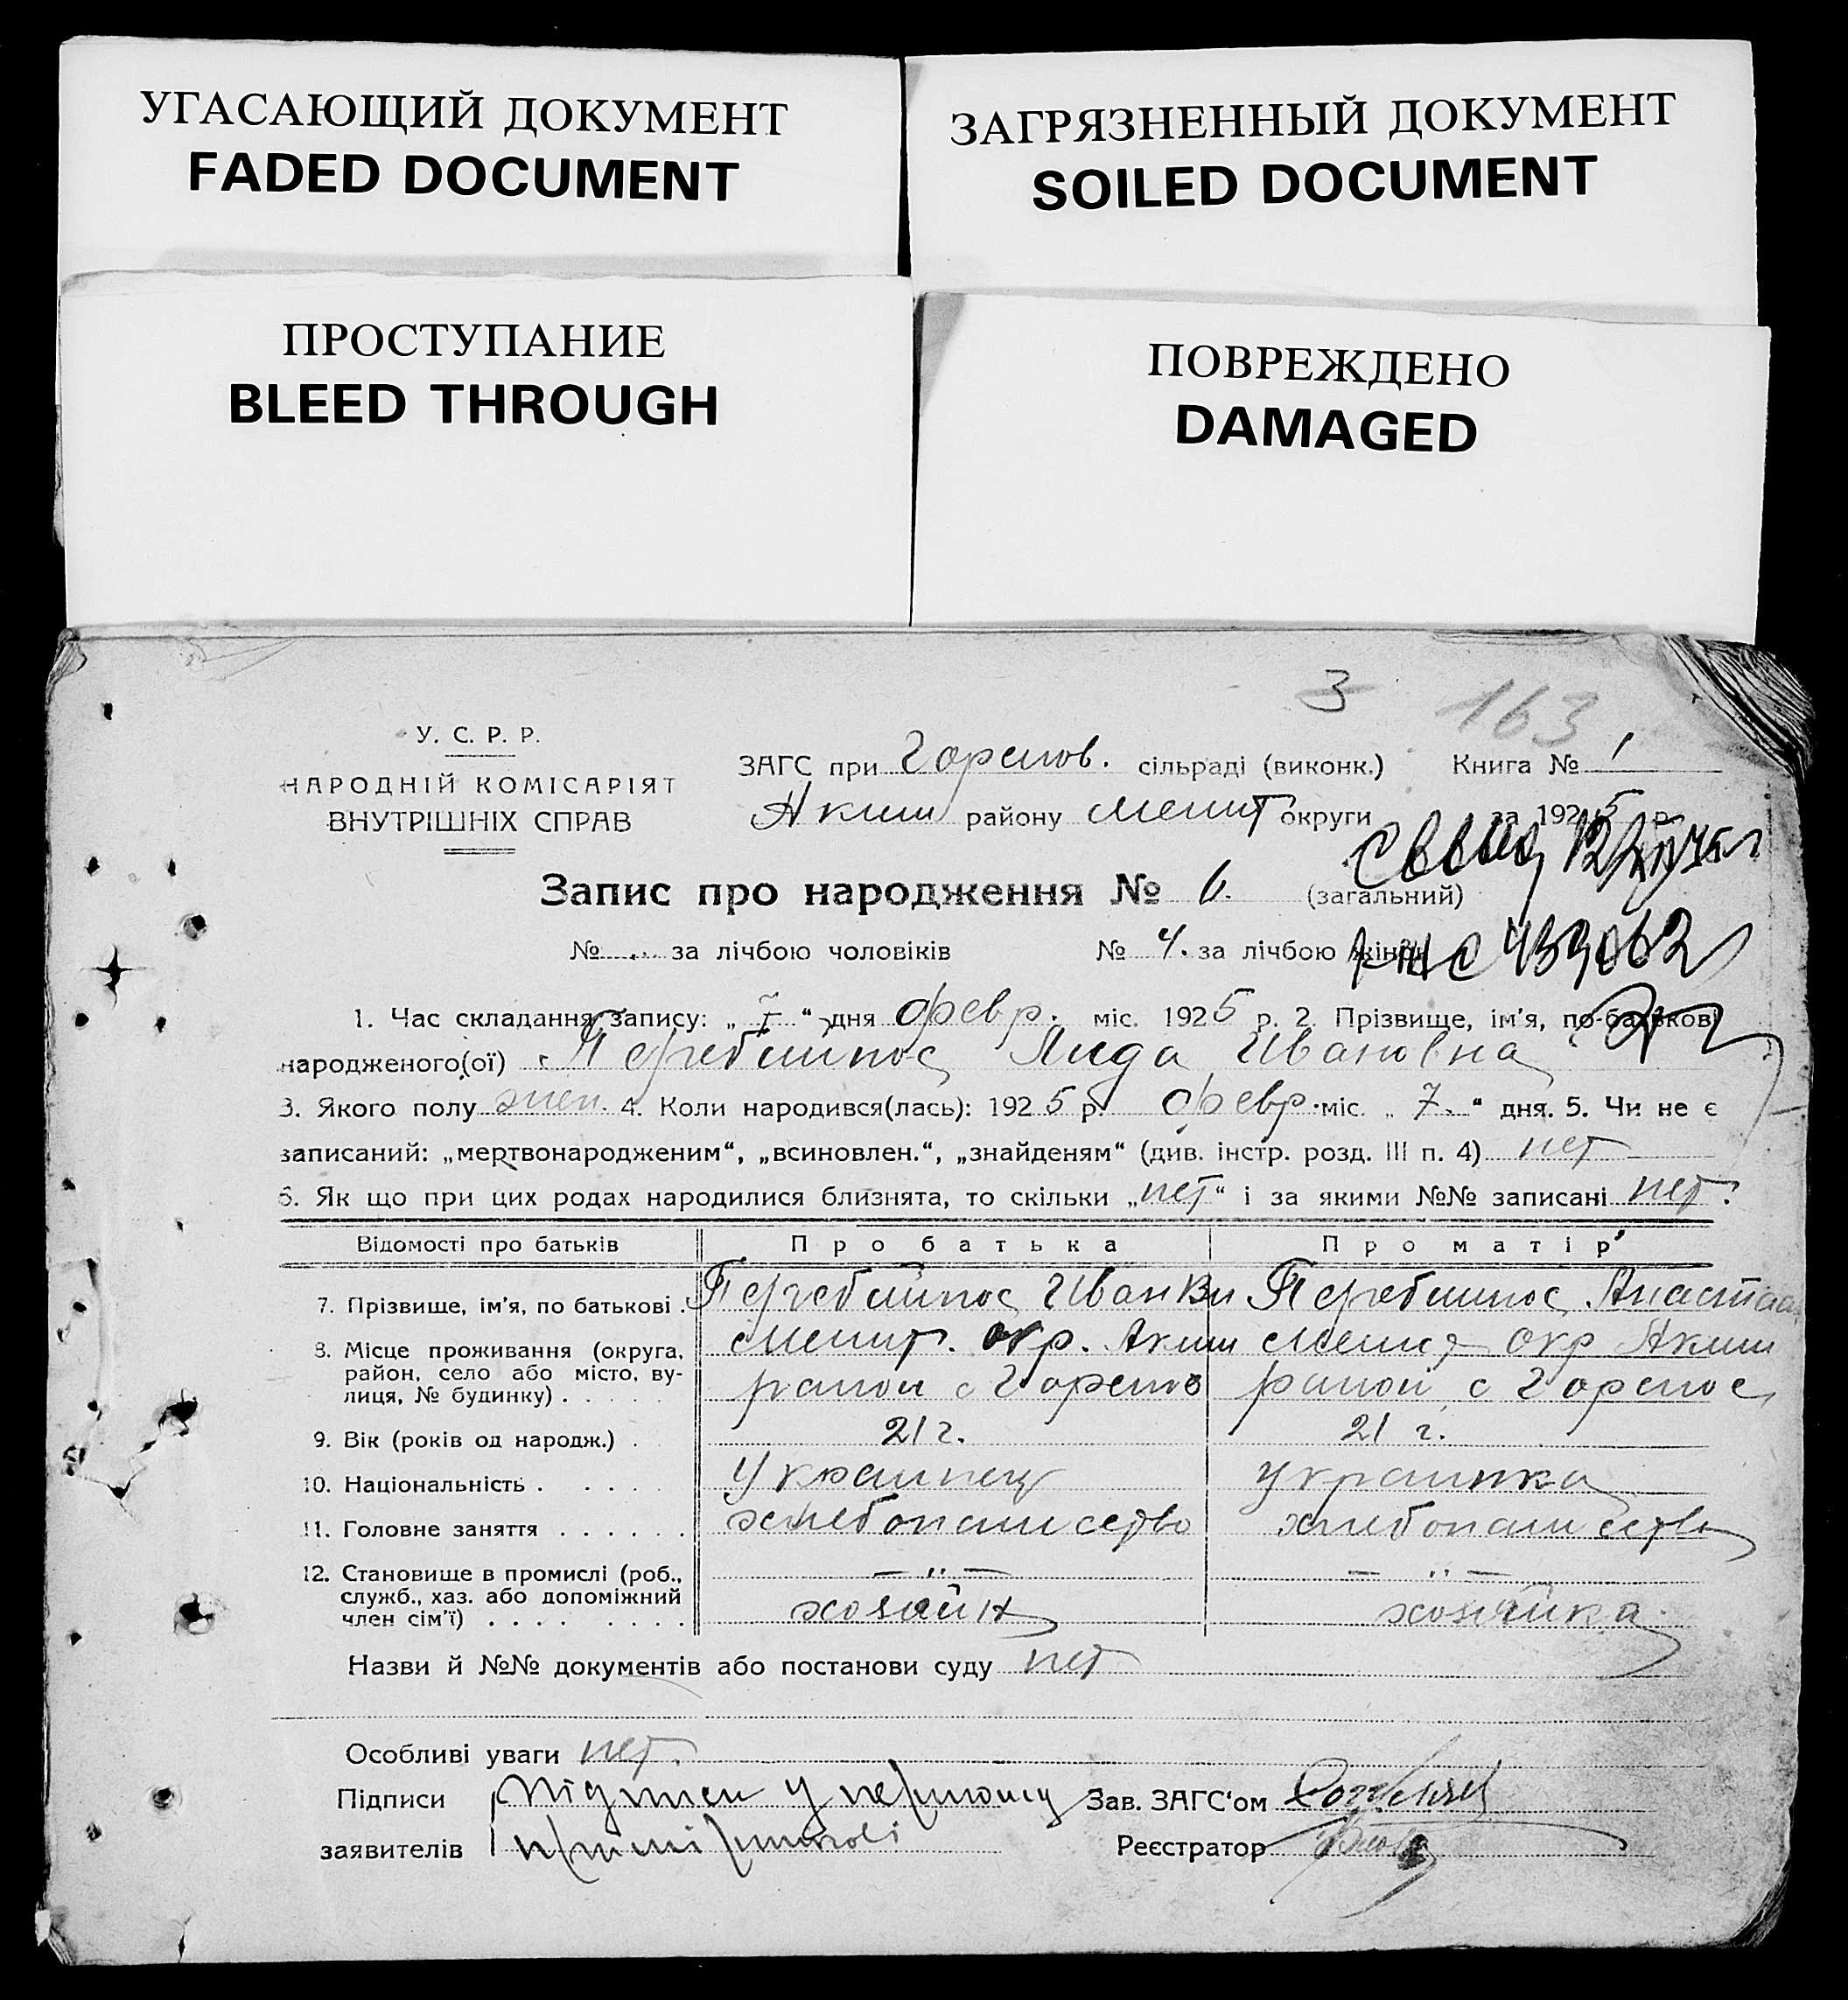 УГАСАЮЩИЙ ДОКУМЕНТ
FADED DOCUMENT
ЗАГРЯЗНЕННЫЙ ДОКУМЕНТ
SOILED DOCUMENT
ПРОСТУПАНИЕ
BLEED THROUGH
ПОВРЕЖДЕНО
DAMAGED
3 163
У. С. Р. Р.
НАРОДНІЙ КОМІСАРІЯТ
ВНУТРІШНІХ СПРАВ
ЗАГС при Горелов. сільраді (виконк.) Книга № 1
Аким району Мелит округи за 1925 р.
Запис про народження № 6. (загальний)
№ за лічбою чоловіків № 4. за лічбою жінок
1. Час складання запису: „ “ дня февр. міс. 1925 р. 2. Прізвище, ім'я, по-батькові
народженого(ої) Перебийнос Лида Ивановна
3. Якого полу жен. 4. Коли народився(лась): 1925 р. февр. міс. „ 7. “ дня. 5. Чи не є
записаний: „мертвонародженим“, „всиновлен.“, „знайденям“ (див. інстр. розд. III п. 4) нет
6. Як що при цих родах народилися близнята, то скільки „нет“ і за якими №№ записані нет.
Відомості про батьків Про батька Про матір
7. Прізвище, ім'я, по батькові . Перебийнос Иван Перебийнос Анастас
8. Місце проживання (округа, район, село або місто, вулиця, № будинку) . . . . .
Мелит. окр. Аким Мелит окр Аким
район с Горелов район с Горелое
9. Вік (років од народж.) . 21 г. 21 г.
10. Національність . . . . . Украинец Украинка
11. Головне заняття . . . . . . хлебопашество хлебопашество
12. Становище в промислі (роб., — „ — — „ —
служб., хаз. або допоміжний
член сім'ї) . . . . . . . . хозяин хозяйка
Назви й №№ документів або постанови суду нет
Особливі уваги нет.
Підписи Підписи у першому Зав. ЗАГС'ом
заявителів примірникові Реєстратор